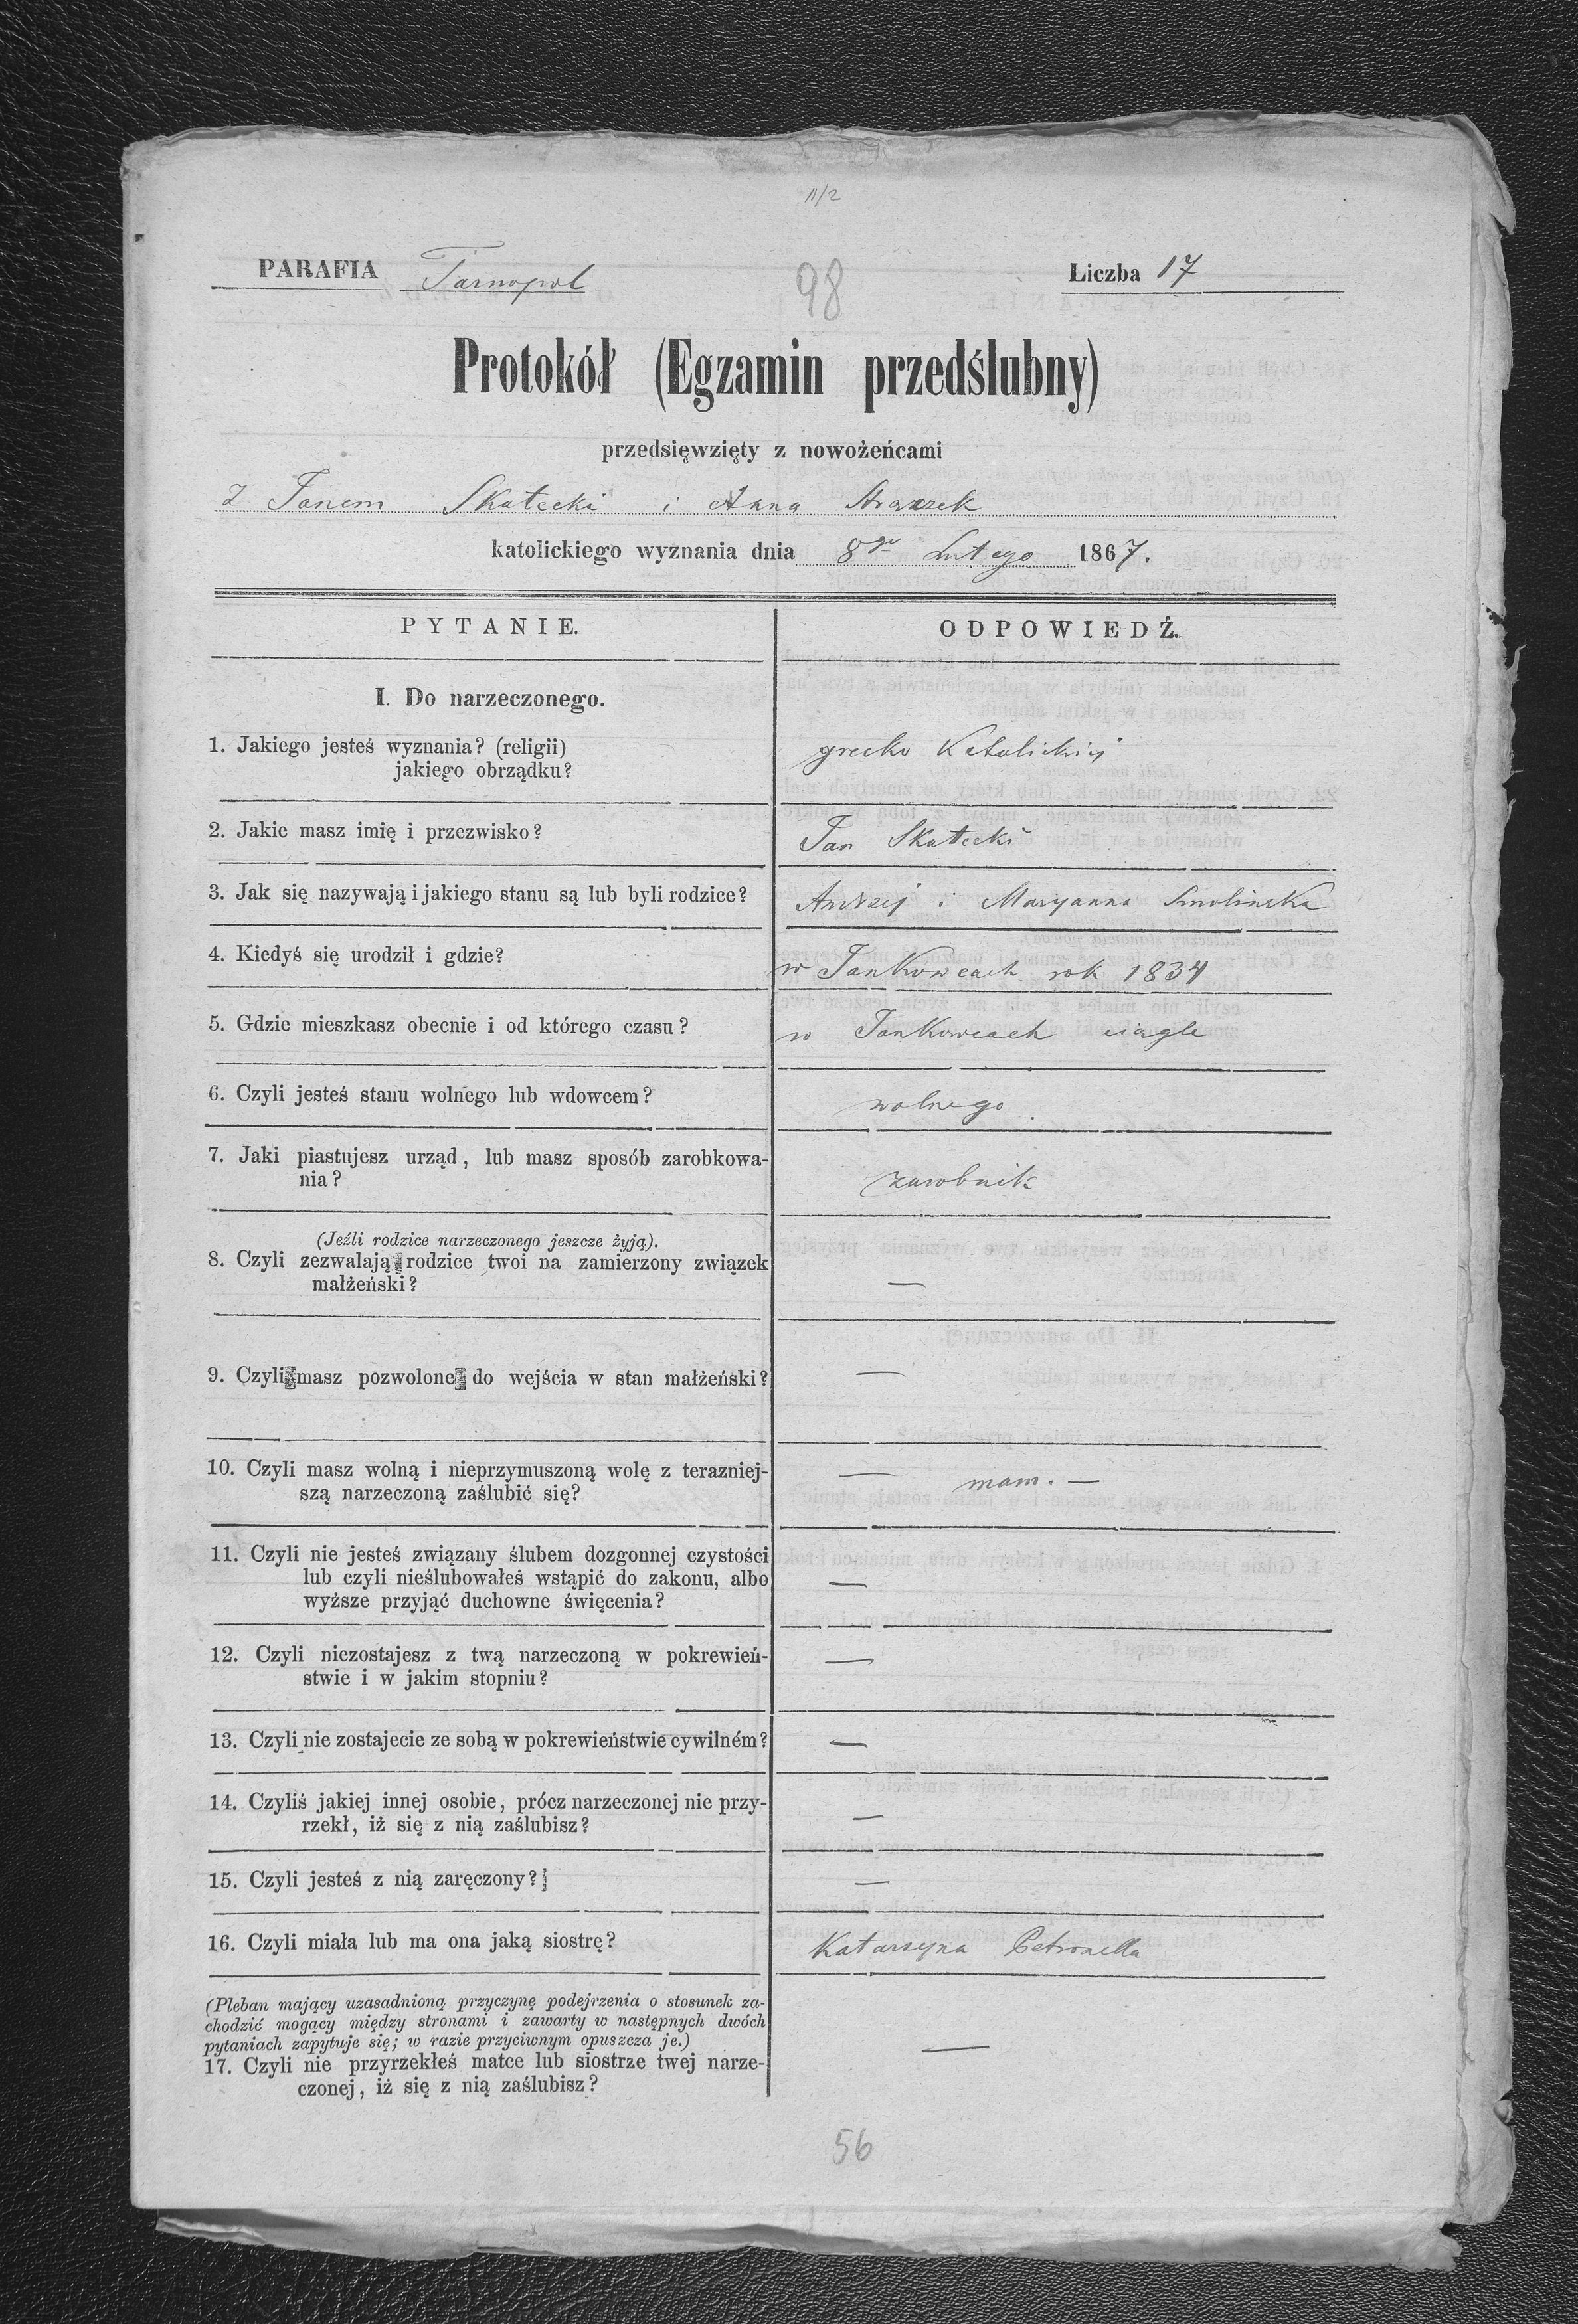 11/2
PARAFIA Tarnopol
98
Liczba 17
Protokół (Egzamin przedślubny)
przedsięwzięty z nowożeńcami
z Janem Skałecki i Anna
katolickiego wyznania dnia 8go Lutego 1867.
PYTANIE.
ODPOWIEDŹ.
I. Do narzeczonego.
1. Jakiego jesteś wyznania? (religii)
jakiego obrządku?
grecko Katolickiej
2. Jakie masz imię i przezwisko?
Jan Skałecki
3. Jak się nazywają i jakiego stanu są lub byli rodzice?
Andrzej i Maryanna Smolinska
4. Kiedyś się urodził i gdzie?
w Jankowcach rok 1834
5. Gdzie mieszkasz obecnie i od którego czasu?
w Jankowcach ciagle
6. Czyli jesteś stanu wolnego lub wdowcem?
wolnego.
7. Jaki piastujesz urząd, lub masz sposób zarobkowa-
nia?
zarobnik
(Jeźli rodzice narzeczonego jeszcze żyją).
8. Czyli zezwalają rodzice twoi na zamierzony związek
małżeński?
—
9. Czyli masz pozwolone do wejścia w stan małżeński?
—
10. Czyli masz wolną i nieprzymuszoną wolę z terazniej-
szą narzeczoną zaślubić się?
— mam. —
11. Czyli nie jesteś związany ślubem dozgonnej czystości
lub czyli nieślubowałeś wstąpić do zakonu, albo
wyższe przyjąć duchowne święcenia?
—
12. Czyli niezostajesz z twą narzeczoną w pokrewień-
stwie i w jakim stopniu?
—
13. Czyli nie zostajecie ze sobą w pokrewieństwie cywilném?
—
14. Czyliś jakiej innej osobie, prócz narzeczonej nie przy-
rzekł, iż się z nią zaślubisz?
—
15. Czyli jesteś z nią zaręczony?
—
16. Czyli miała lub ma ona jaką siostrę?
Katarzyna Petronella
(Pleban mający uzasadnioną przyczynę podejrzenia o stosunek za-
chodzić mogący między stronami i zawarty w następnych dwóch
pytaniach zapytuje się; w razie przyciwnym opuszcza je.)
17. Czyli nie przyrzekłeś matce lub siostrze twej narze-
czonej, iż się z nią zaślubisz?
—
56